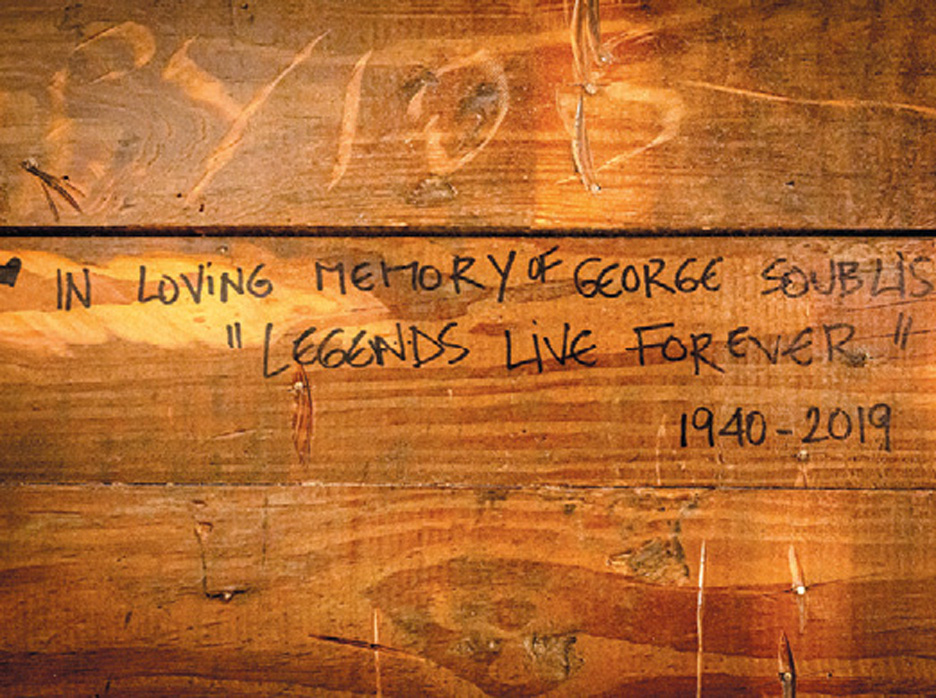 IN LOVING MEMORY OF GEORGE SOUBLIS
"LEGENDS LIVE FOREVER"
1940-2019